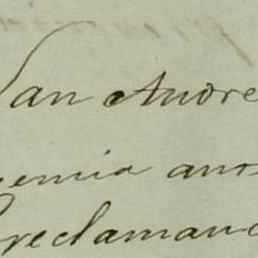 San Andre
emia ans
reclamand